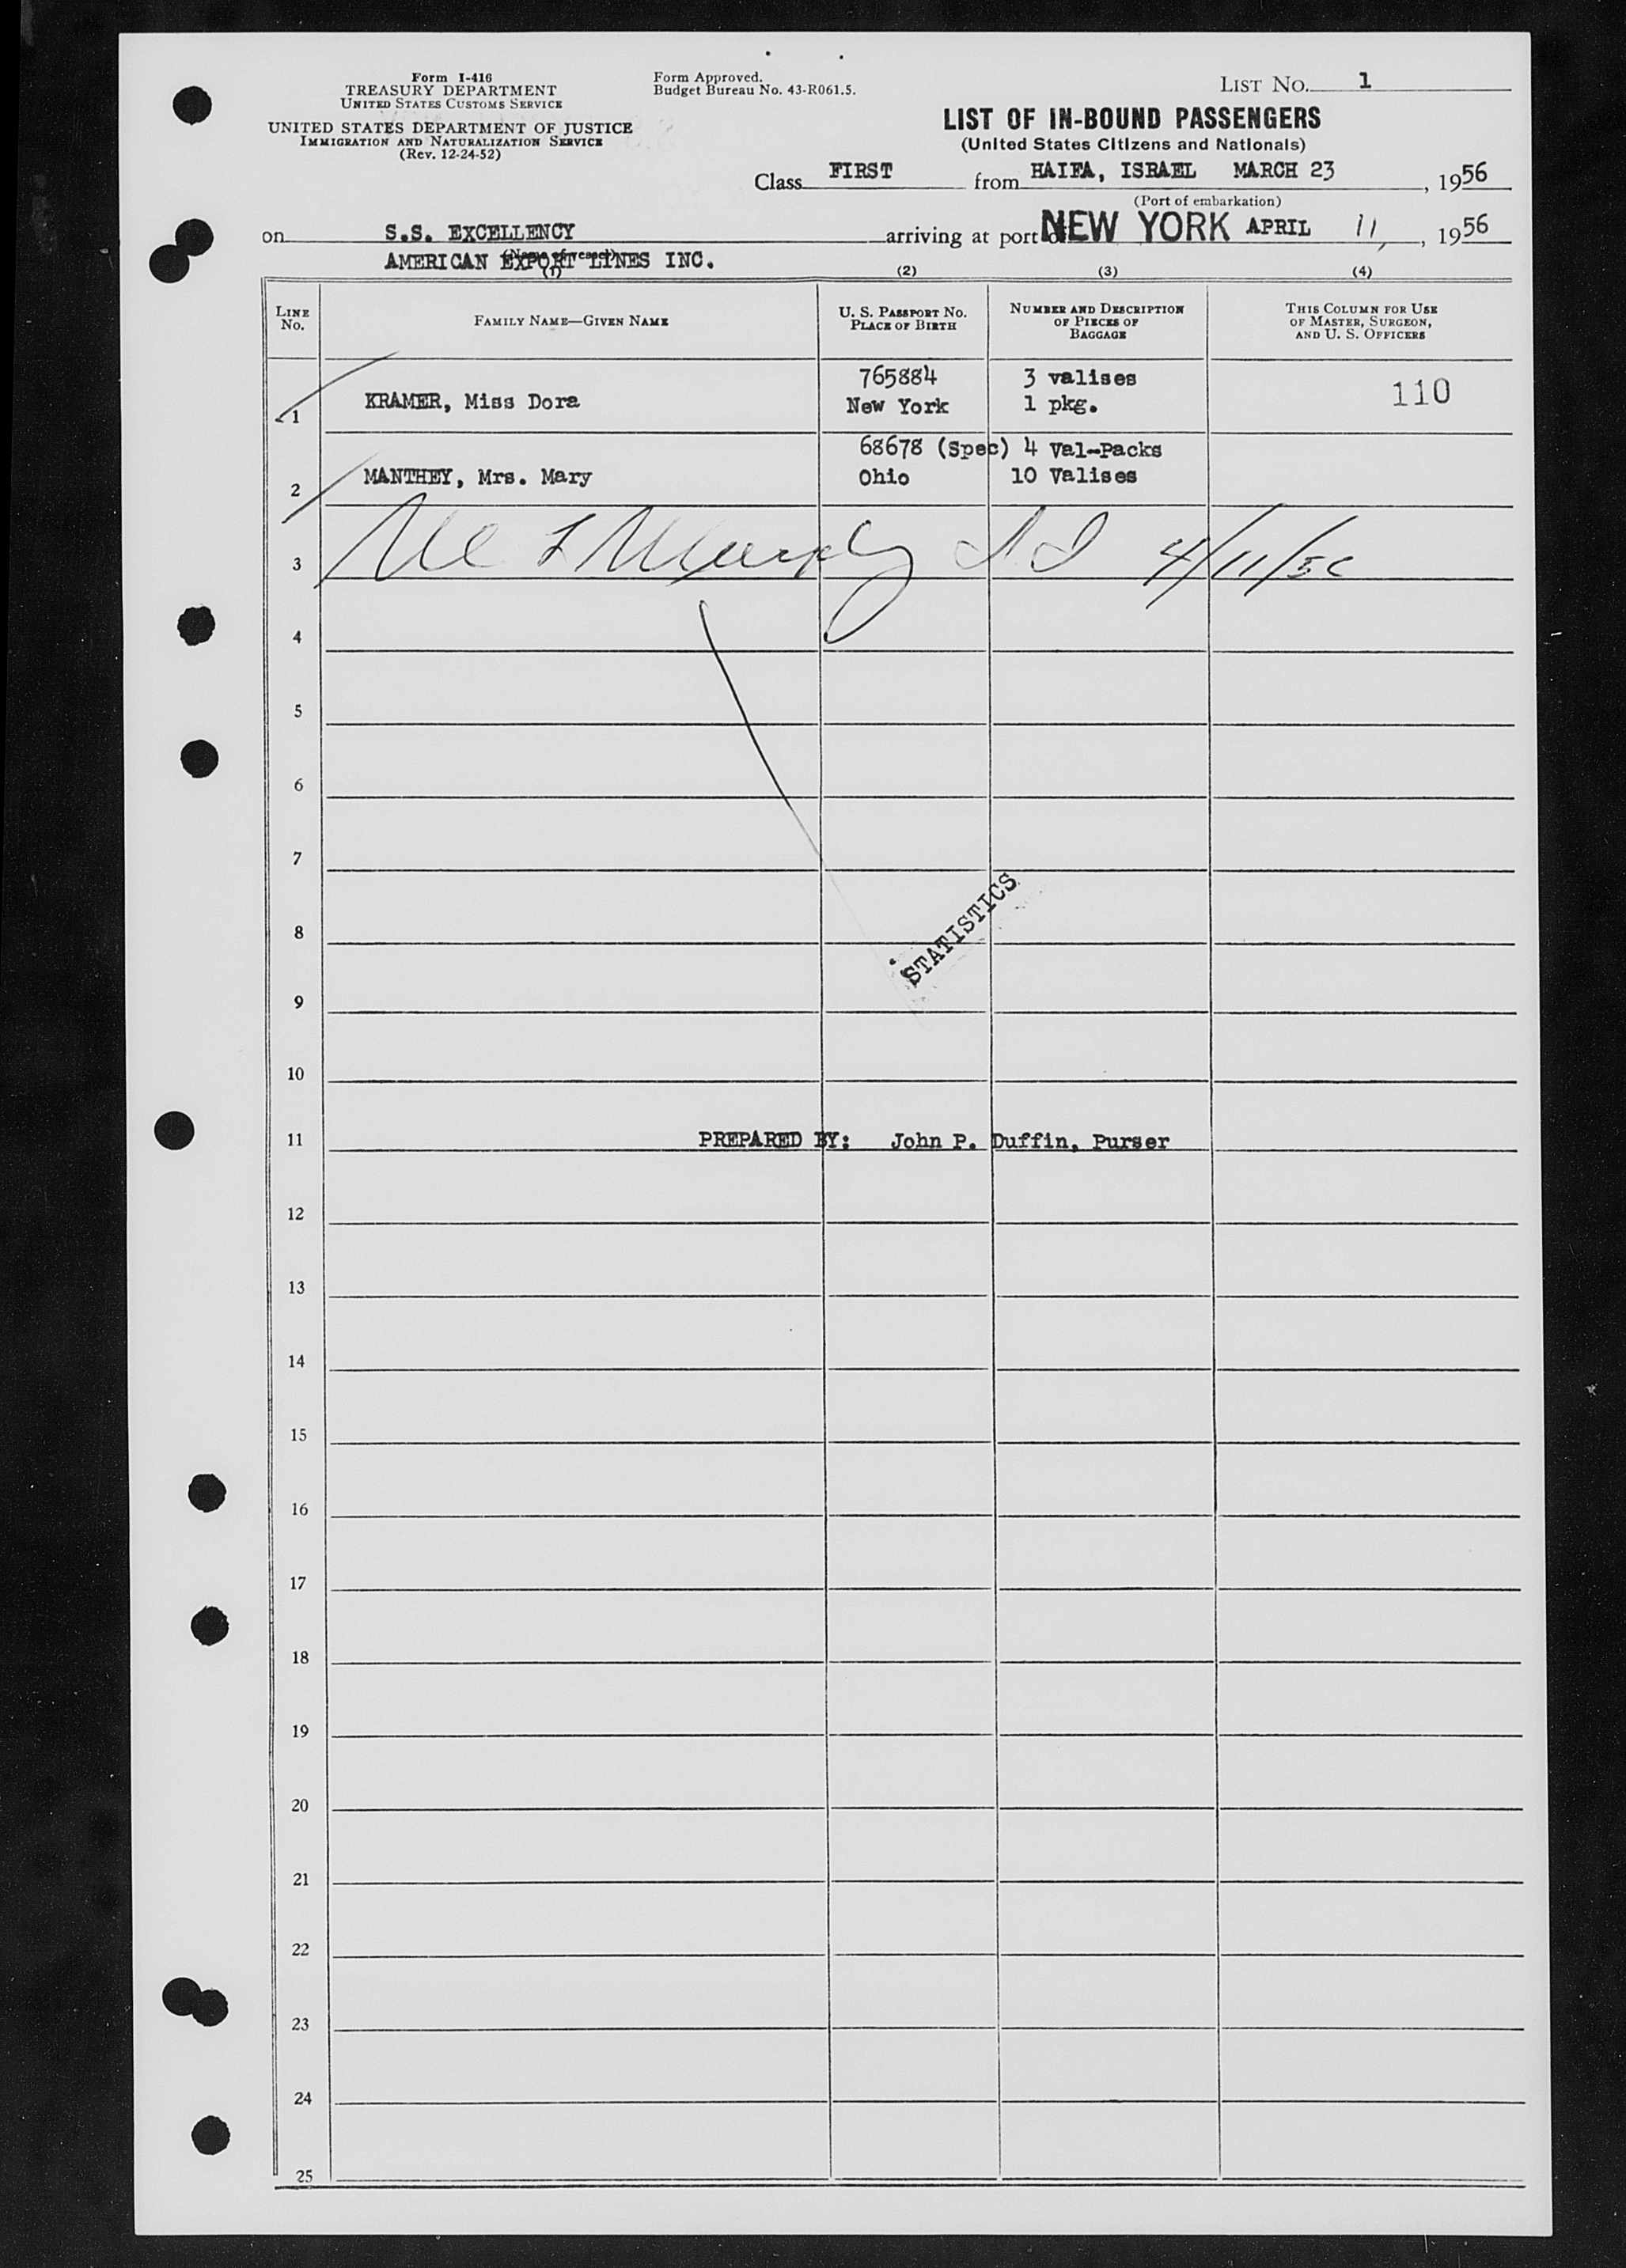 Form I-416
TREASURY DEPARTMENT
UNITED STATES CUSTOMS SERVICE
UNITED STATES DEPARTMENT OF JUSTICE
IMMIGRATION AND NATURALIZATION SERVICE
(Rev. 12-24-52)
Form Approved.
Budget Bureau No. 43-R061.5.
LIST NO. 1
LIST OF IN-BOUND PASSENGERS
(United States Citizens and Nationals)
Class FIRST from HAIFA, ISRAEL MARCH 23, 1956
(Port of embarkation)
on S.S. EXCELLENCY arriving at port of NEW YORK APRIL 11, 1956
(Name of vessel)
AMERICAN EXPORT LINES INC.
(1) (2) (3) (4)
LINE No. FAMILY NAME—GIVEN NAME U. S. PASSPORT NO. PLACE OF BIRTH NUMBER AND DESCRIPTION OF PIECES OF BAGGAGE THIS COLUMN FOR USE OF MASTER, SURGEON, AND U. S. OFFICERS
765884 3 valises
1 KRAMER, Miss Dora New York 1 pkg. 110
68678 (Spec) 4 Val-Packs
2 MANTHEY, Mrs. Mary Ohio 10 Valises
3 4/11/56
4
5
6
7
8
STATISTICS
9
10
11 PREPARED BY: John P. Duffin, Purser
12
13
14
15
16
17
18
19
20
21
22
23
24
25